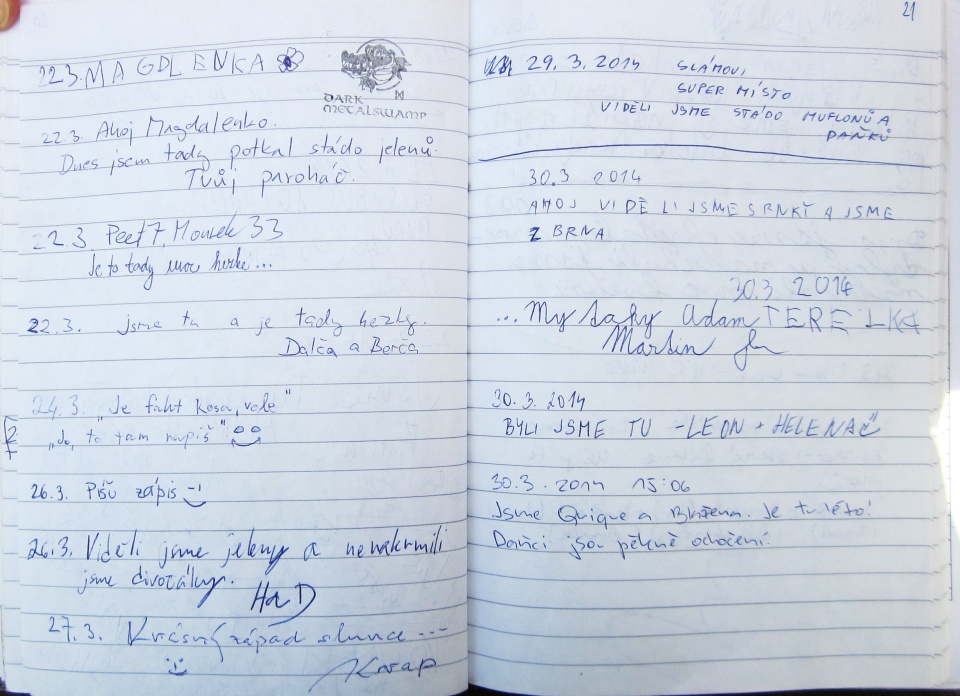 22.3. MAGDLENKA
DARK
METALSWAMP
22.3 Ahoj Magdalenko.
Dnes jsem tady potkal stádo jelenů.
Tvůj paroháč.
22.3. Mourek 33
Je to tady moc hezké...
22.3. jsme tu a je tady hezky.
Dalča a Borča
24.3. „Je fakt kosa, vole"
„Jo, to tam napiš"
26.3. Píšu zápis
26.3. Viděli jsme jeleny a nenakrmili
jsme divočáky.
H a D
27.3. Krásný západ slunce ---
21
29.3.2014 SLÁMOVI
SUPER MÍSTO
VIDĚLI JSME STÁDO MUFLONŮ A
DAŇKŮ
30.3 2014
AHOJ VIDĚLI JSME SRNKY A JSME
Z BRNA
30.3 2014
...My taky Adam TERELKA
Martin
30.3.2014
BYLI JSME TU - LEON + HELENAČ
30.3.2014 15:06
Jsme Quique a Blažena. Je tu léto!
Daňci jsou pěkně ochočení.